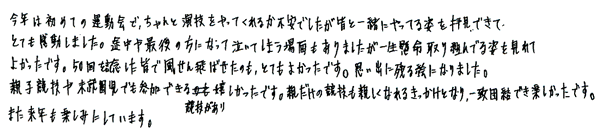 今年は初めての運動会で、ちゃんと競技をやってくれるか不安でしたが皆と一緒にやってる姿を拝見できて、
とても感動しました。途中や最後の方になって泣いてしまう場面もありましたが一生懸命取り組んでる姿を見れて
よかったです。50回記念に皆で風せん飛ばせたのも、とてもよかったです。思い出に残る後になりました。
親子競技や未就園児でも参加できる も嬉しかったです。親だけの競技も親しくなれるきっかけとなり、一致団結でき楽しかったです。
競技があり
また来年も楽しみにしています。